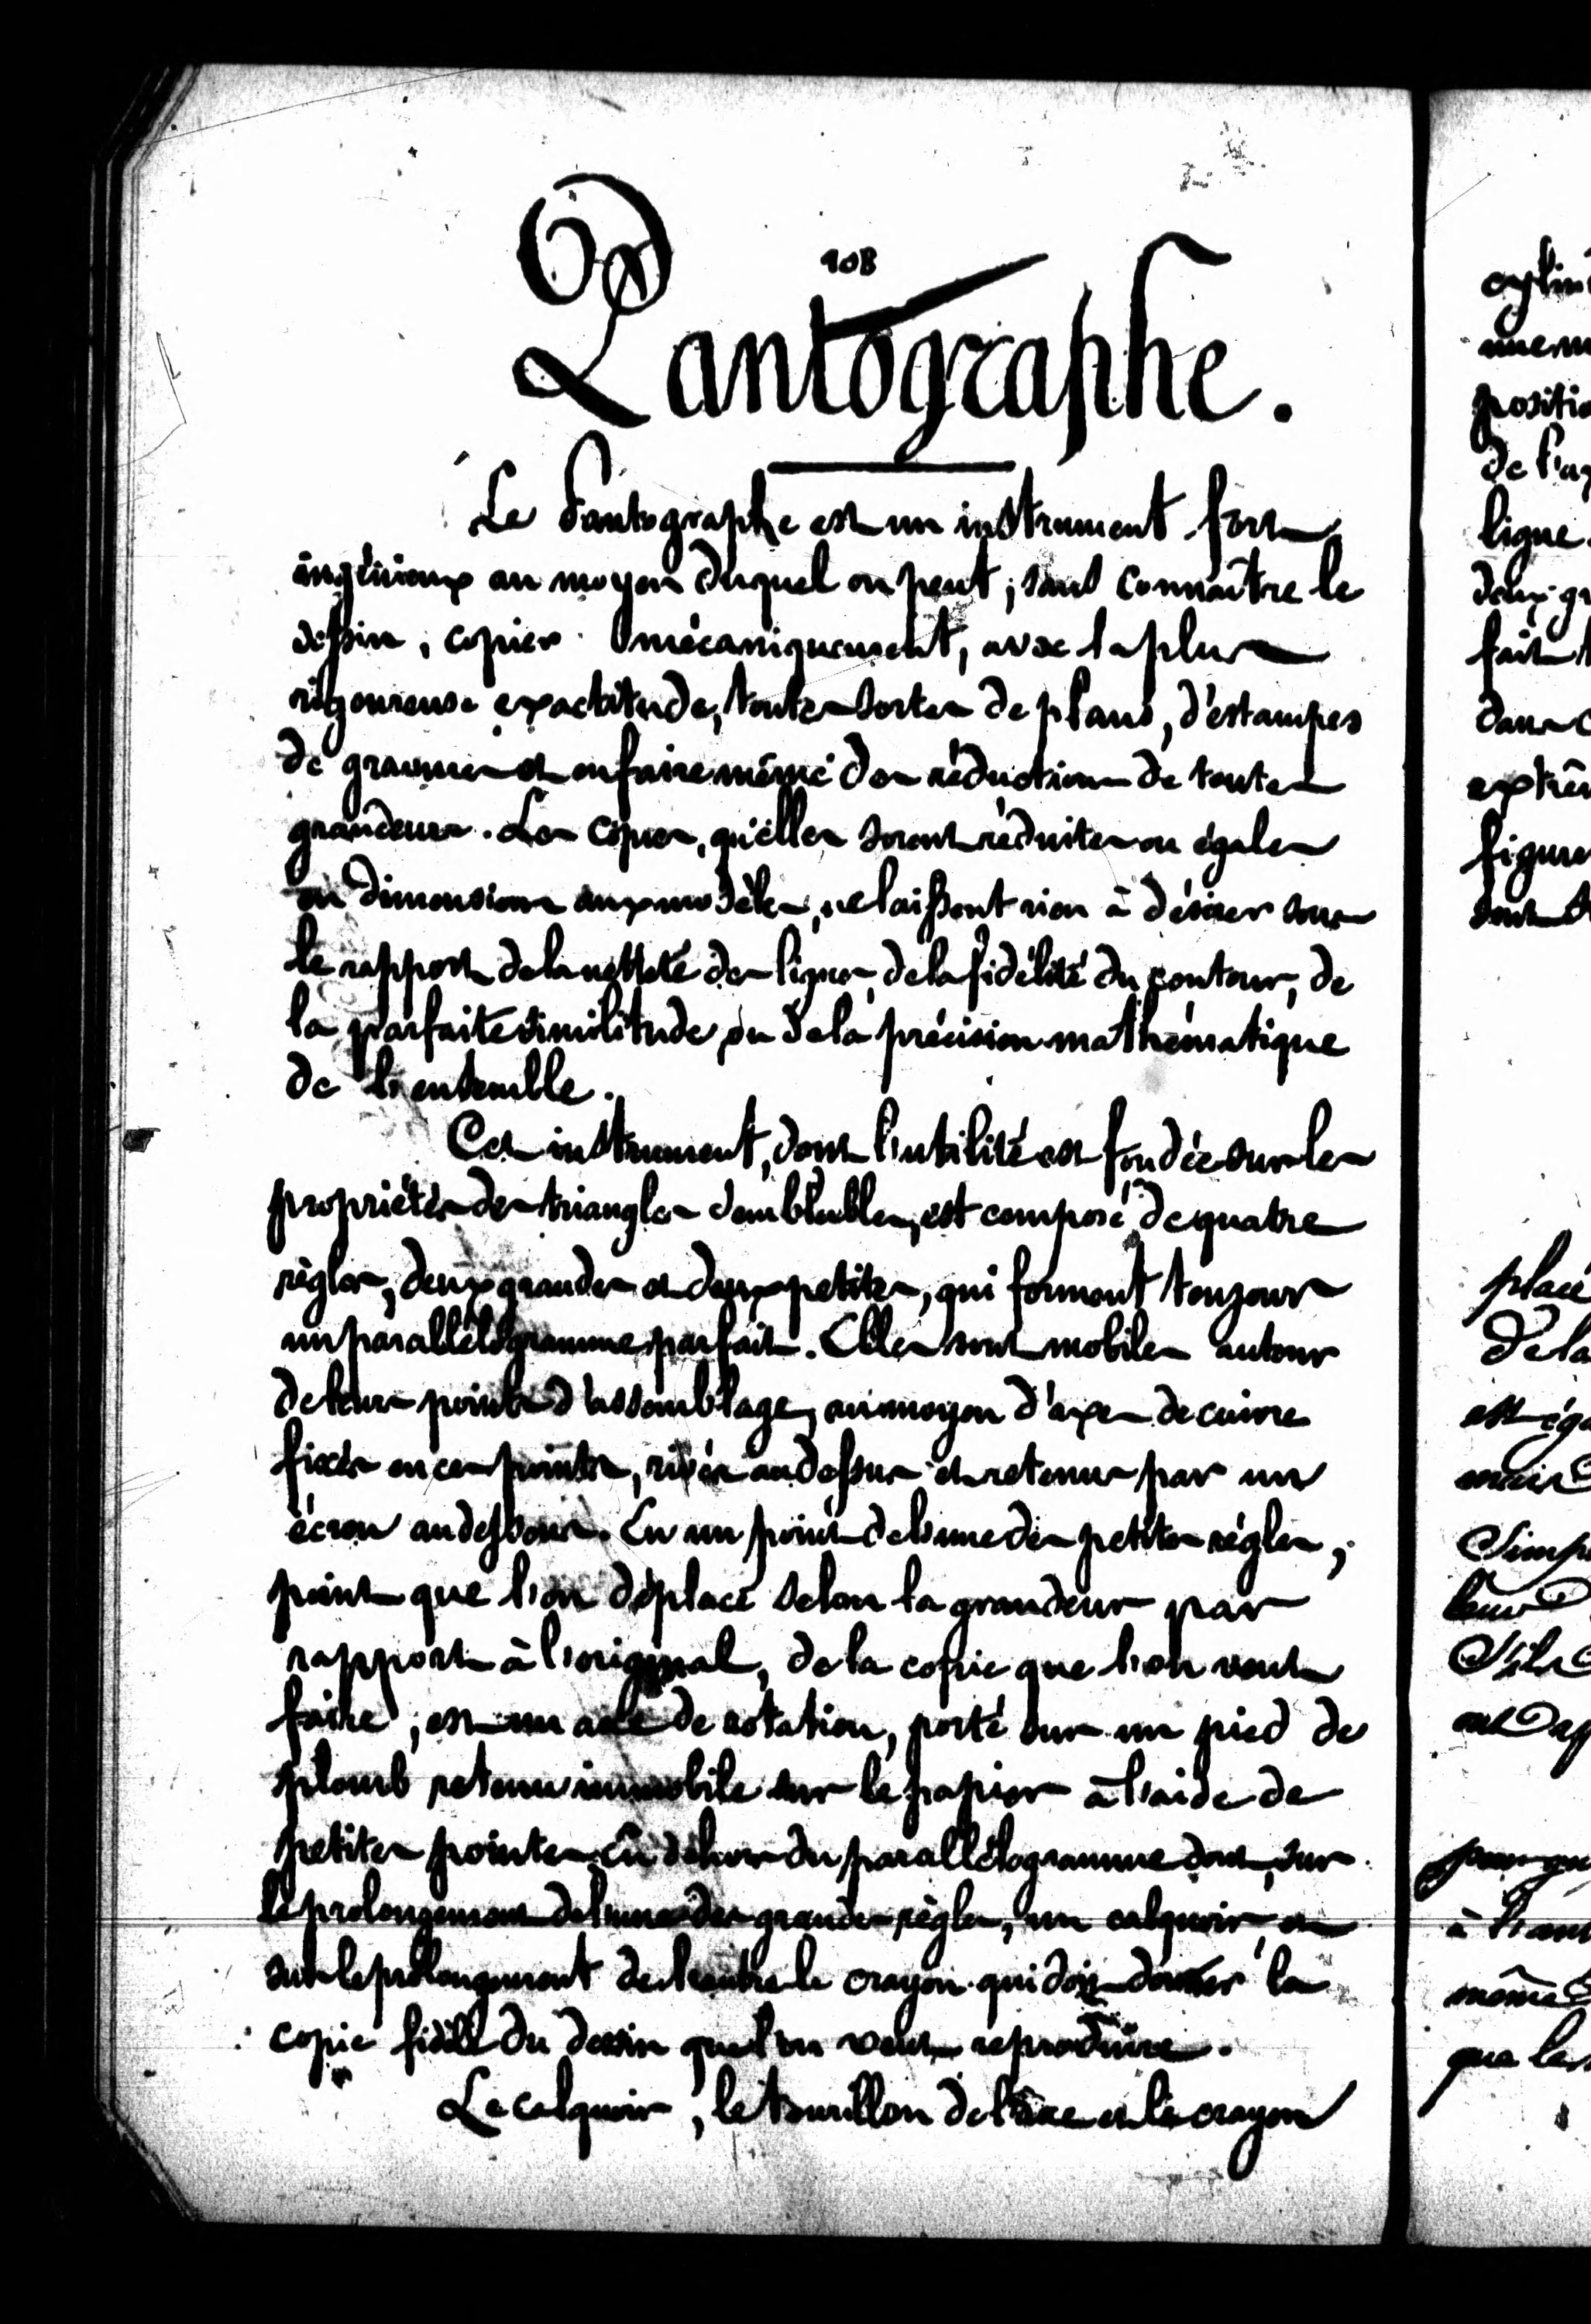 108
Pantographe.
Le Pantographe est un instrument fort
ingénieux au moyen duquel on peut, sans connaître le
dessin, copier mécaniquement, avec la plus
rigoureuse exactitude, toutes sortes de plans, d'estampes
de gravures et en faire même des réductions de toutes
grandeurs. Les copies, qu'elles soient réduites ou égales
en dimensions aux modèles, ne laissent rien à désirer sous
le rapport de la netteté des lignes, de la fidélité du contour, de
la parfaite similitude, ou de la précision mathématique
de l'ensemble.
Cet instrument, dont l'utilité est fondée sur les
propriétés des triangles semblables, est composé de quatre
règles, deux grandes et deux petites, qui forment toujours
un parallélogramme parfait. Elles sont mobiles autour
de leurs points d'assemblage, au moyen d'axes de cuivre
fixés en ces points, rivés au dessus et retenus par un
écrou au dessous. En un point de l'une des petites règles,
point que l'on déplace selon la grandeur par
rapport à l'original, de la copie que l'on veut
faire, est un axe de rotation, porté sur un pied de
plomb retenu immobile sur le papier à l'aide de
petites pointes. En dehors du parallélogramme sont, sur
le prolongement de l'une des grandes règles, un calquoir, et
sur le prolongement de l'autre le crayon qui doit donner la
copie fidèle du dessin que l'on veut reproduire.
Le calquoir, le tourillon de l'axe et le crayon
cylin
positio
de l'a
ligne.
deux gr
fait
dans c
extrê
figure
sont
placé
de la
est éga
mais
Simp
leur
S'il
à l'au
même
que les